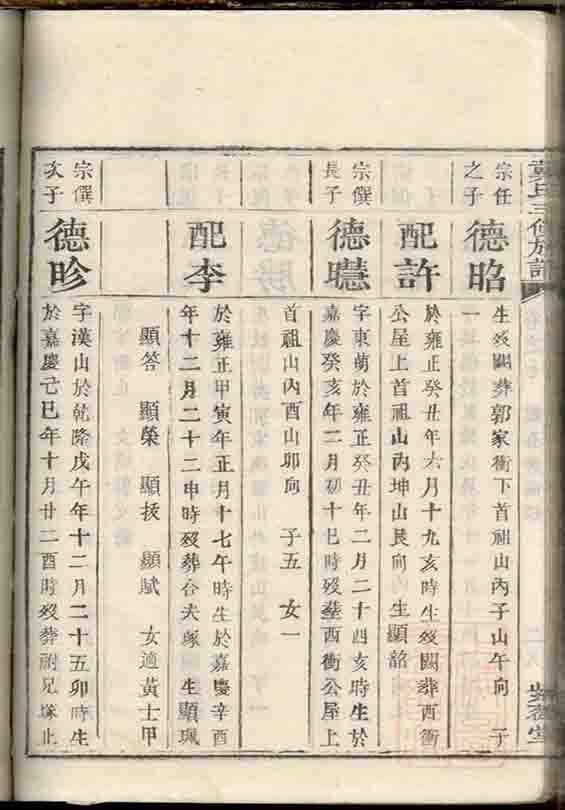 宗任
之子
德昭
生歿闕葬郭家衝下首祖山內子山午向 子
一
配許
於雍正癸丑年六月十九亥時生歿闕葬西衝
公屋上首祖山內坤山艮向 生顯韶
宗僎
長子
德𥌓
字東萌於雍正癸丑年二月二十四亥時生於
嘉慶癸亥年二月初十巳時歿塟西衝公屋上
首祖山內酉山卯向 子五 女一
配李
於雍正甲寅年正月十七午時生於嘉慶辛酉
年十二月二十二申時歿葬合夫塚 生顯珮
顯答 顯榮 顯拔 顯賦 女適黃士甲
宗僎
次子
德昣
字漢山於乾隆戊午年十二月二十五卯時生
於嘉慶己巳年十月廿二酉時歿葬祔兄塚止